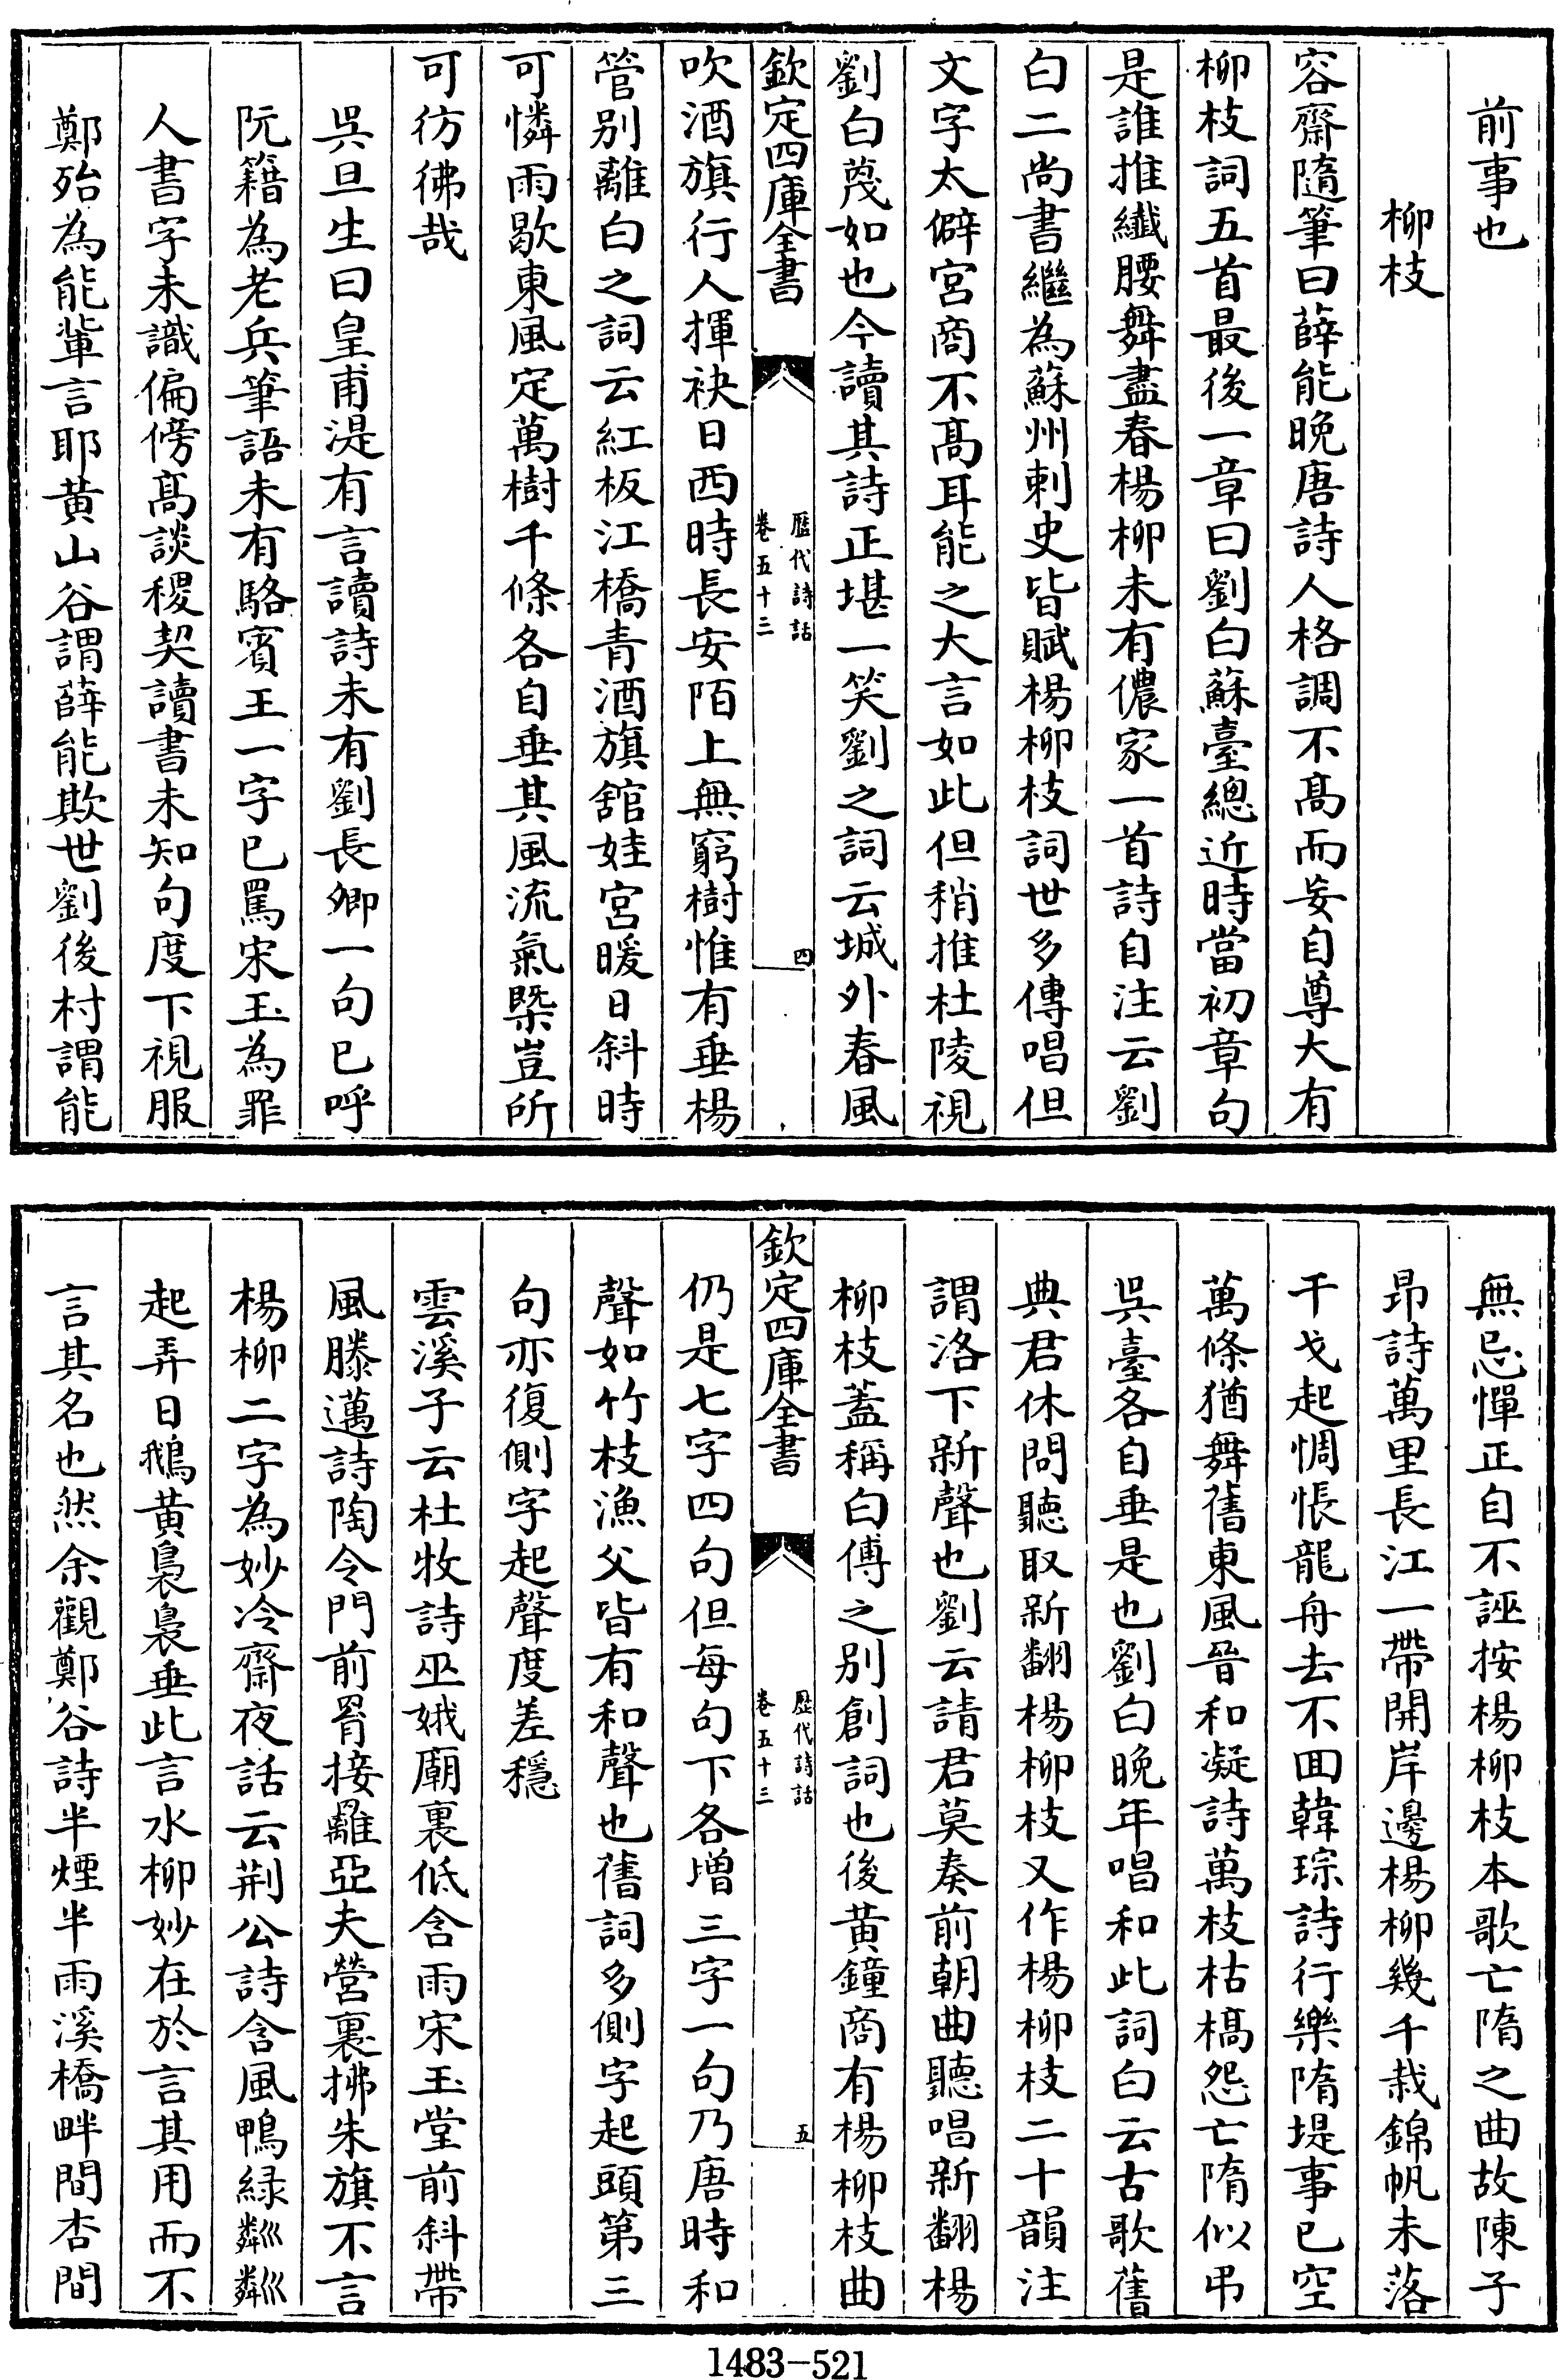 前事也
柳枝
容齋隨筆曰薛能晚唐詩人格調不髙而妄自尊大有
柳枝詞五首最後一章曰劉白蘇臺總近時當初章句
是誰推纖腰舞盡春楊柳未有儂家一首詩自注云劉
白二尚書繼為蘇州刺史皆賦楊柳枝詞世多傳唱但
文字太僻宮商不髙耳能之大言如此但稍推杜陵視
劉白蔑如也今讀其詩正堪一笑劉之詞云城外春風
欽定四庫全書
歷代詩話
卷五十三
四
吹酒旗行人揮袂日西時長安陌上無窮樹惟有垂楊
管别離白之詞云紅板江橋青酒旗舘娃宮暖日斜時
可憐雨歇東風定萬樹千條各自垂其風流氣槩豈所
可彷彿哉
吳旦生曰皇甫湜有言讀詩未有劉長卿一句已呼
阮籍為老兵筆語未有駱賓王一字已罵宋玉為罪
人書字未識偏傍髙談稷契讀書未知句度下視服
鄭殆為能輩言耶黄山谷謂薛能欺世劉後村謂能
無忌憚正自不誣按楊柳枝本歌亡隋之曲故陳子
昂詩萬里長江一帶開岸邊楊柳幾千栽錦帆未落
干戈起惆悵龍舟去不囬韓琮詩行樂隋堤事已空
萬條猶舞舊東風晉和凝詩萬枝枯槁怨亡隋似弔
吳臺各自垂是也劉白晚年唱和此詞白云古歌舊
典君休問聽取新翻楊柳枝又作楊柳枝二十韻注
謂洛下新聲也劉云請君莫奏前朝曲聽唱新翻楊
柳枝蓋稱白傅之别創詞也後黄鐘商有楊柳枝曲
欽定四庫全書
歷代詩話
卷五十三
五
仍是七字四句但每句下各增三字一句乃唐時和
聲如竹枝漁父皆有和聲也舊詞多側字起頭第三
句亦復側字起聲度差穩
雲溪子云杜牧詩巫娥廟裏低含雨宋玉堂前斜帶
風滕邁詩陶令門前罥接䍦亞夫營裏拂朱旗不言
楊柳二字為妙冷齋夜話云荆公詩含風鴨緑粼粼
起弄日鵝黄裊裊垂此言水柳妙在於言其用而不
言其名也然余觀鄭谷詩半煙半雨溪橋畔間杏間
1483-521